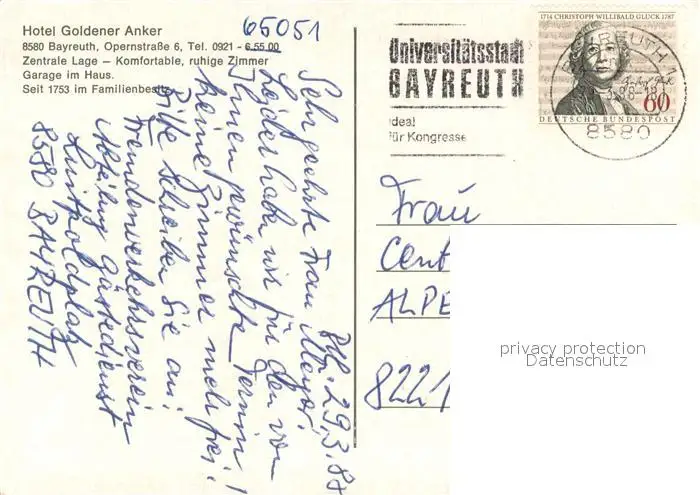 Hotel Goldener Anker
8580 Bayreuth, Opernstraße 6, Tel. 0921 - 6 55 00
Zentrale Lage — Komfortable, ruhige Zimmer
Garage im Haus.
Seit 1753 im Familienbesitz
65051
Universitätsstadt
BAYREUTH
ideal
für Kongresse
1714 CHRISTOPH WILLIBALD GLUCK 1787
60
DEUTSCHE BUNDESPOST
BAYREUTH 1
8580
29.3.88
Sehr geehrte Frau Mayor,
Leider haben wir für den von
Ihnen gewünschten Termin
keine Zimmer mehr frei!
Bitte schreiben Sie an:
Fremdenverkehrsverein
Abteilung Gästedienst
Luitpoldplatz
8580 BAYREUTH
Frau
Cent
ALPE
8221
privacy protection
Datenschutz